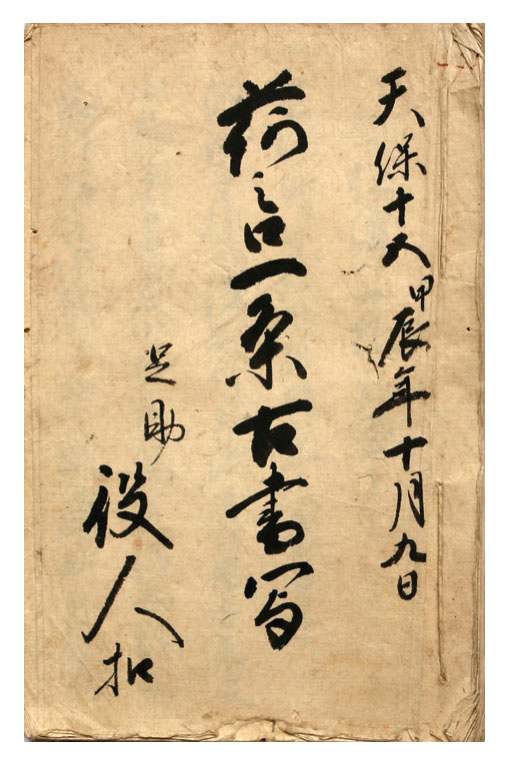 天保十五甲辰年十月九日
荷之口一条古書写
足助
役人扣